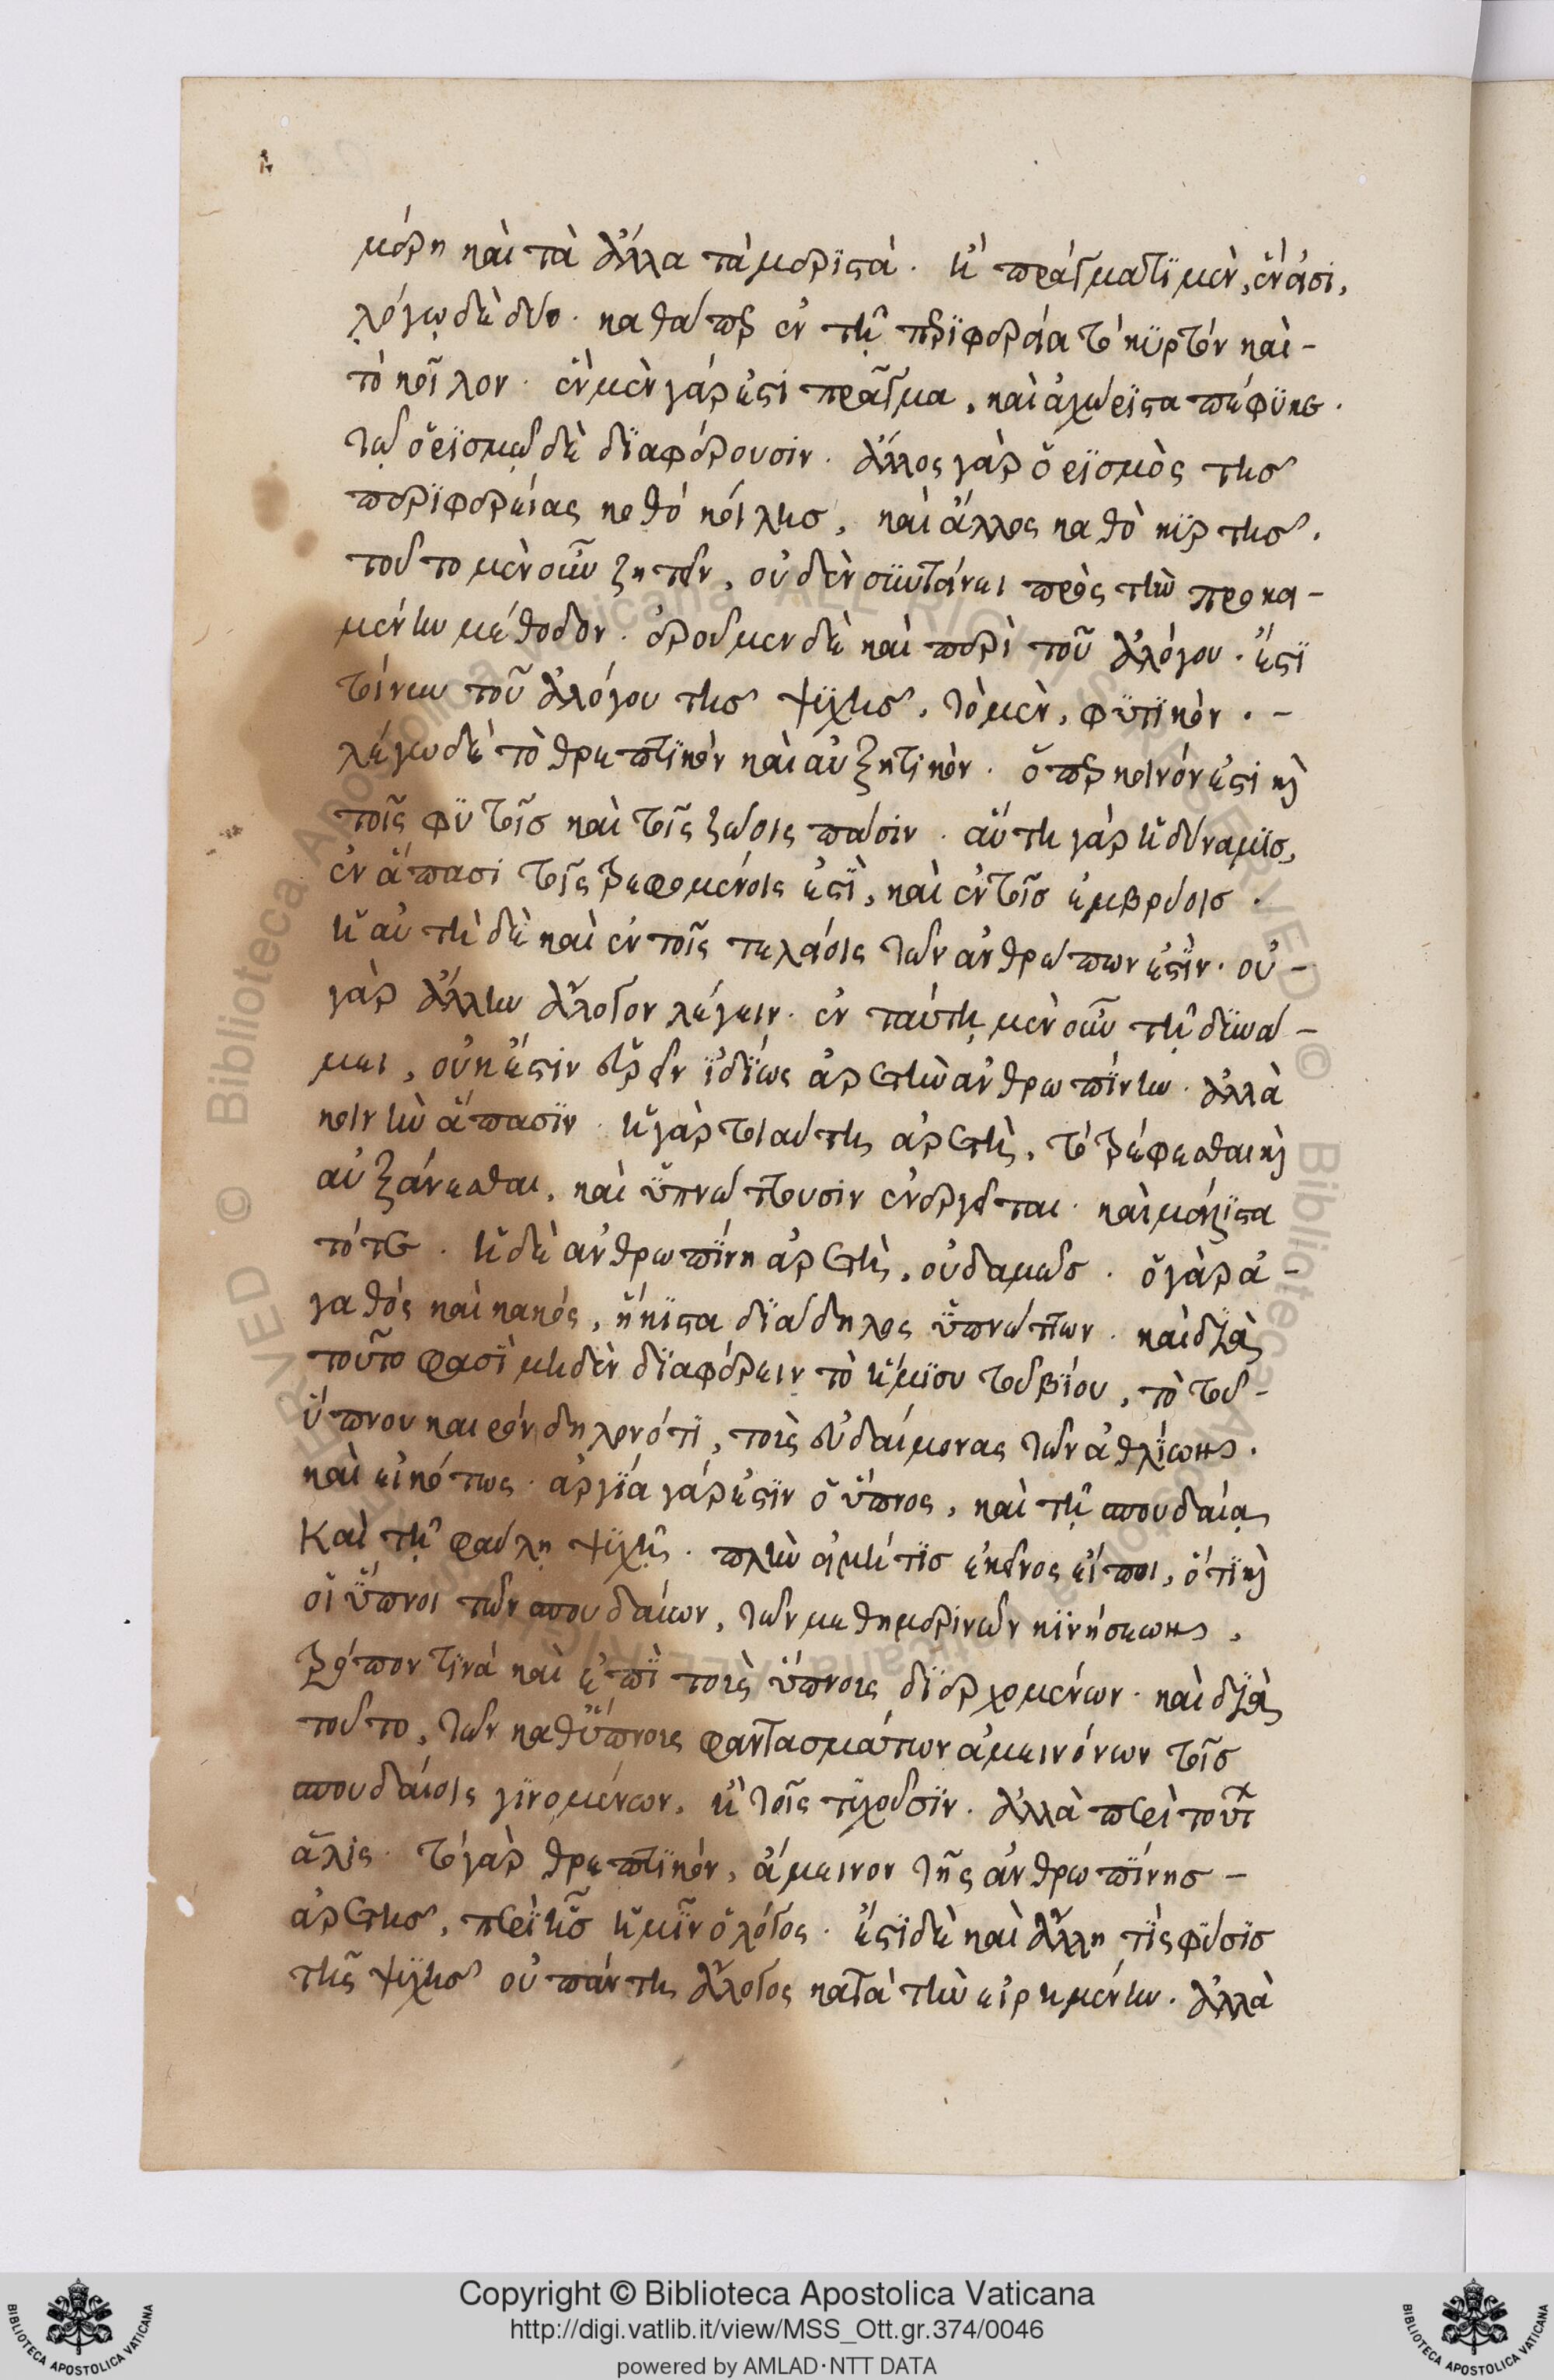 μέρη καὶ τὰ ἄλλα τὰ μεριστά. ἢ πράγματι μὲν, ἕν εἰσι,
λόγῳ δὲ δύο. καθάπερ ἐν τῇ περιφερεία τὸ κυρτόν καὶ -
τὸ κοῖλον. ἓν μὲν γάρ ἐστι πρᾶγμα, καὶ ἀχώριστα πέφυκε.
τῷ ὁρισμῷ δὲ διαφέρουσιν. ἄλλος γὰρ ὁρισμὸς τῆς
περιφερείας καθό κοίλης, καὶ ἄλλος καθὸ κυρτῆς.
τοῦτο μὲν οὖν ζητεῖν, οὐδὲν συντείνει πρὸς τὴν προκει-
μένην μέθοδον. ἐροῦμεν δὲ καὶ περὶ τοῦ ἀλόγου. ἔστι
τοίνυν τοῦ ἀλόγου τῆς ψυχῆς, τὸ μὲν, φυτικὸν. -
λέγω δὲ τὸ θρεπτικὸν καὶ αὐξητικὸν. ὅπερ κοινόν ἐστι καὶ
τοῖς φυτοῖς καὶ τοῖς ζώοις πᾶσιν. αὕτη γὰρ ἡ δύναμις,
ἐν ἅπασι τοῖς τρεφομένοις ἐστὶ, καὶ ἐν τοῖς ἐμβρύοις.
ἡ αὐτὴ δὲ καὶ ἐν τοῖς τελείοις τῶν ἀνθρώπων ἐστὶν. οὐ -
γὰρ ἄλλην εὔλογον λέγειν. ἐν ταύτῃ μὲν οὖν τῇ δυνά-
μει, οὐκ ἔστιν εὑρεῖν ἰδίως ἀρετὴν ἀνθρωπίνην. ἀλλὰ
κοινὴν ἅπασιν. ἡ γὰρ τοιαύτη ἀρετὴ, τὸ τρέφεσθαι καὶ
αὐξάνεσθαι, καὶ ὑπνώττουσιν ἐνεργεῖται. καὶ μάλιστα
τότε. ἡ δὲ ἀνθρωπίνη ἀρετὴ, οὐδαμῶς. ὁ γὰρ ἀ-
γαθός καὶ κακός, ἥκιστα διάδηλος ὑπνώττων. καὶ διὰ
τοῦτο φασὶ μηδὲν διαφέρειν τὸ ἥμισυ τοῦ βίου, τὸ τοῦ -
ὕπνου καιρόν δηλονότι, τοὺς εὐδαίμονας τῶν ἀθλίων.
καὶ εἰκότως. ἀργία γάρ ἐστιν ὁ ὕπνος, καὶ τῇ σπουδαίᾳ
Καὶ τῇ φαύλῃ ψυχῇ. πλὴν εἰμή τις ἐκεῖνος εἴποι, ὅτι καὶ
οἱ ὕπνοι τῶν σπουδαίων, τῶν μεθημερινῶν κινήσεων,
τρόπον τινὰ καὶ ἐπὶ τοὺς ὕπνους διερχομένων. καὶ διὰ
τοῦτο, τῶν καθ ὕπνους φαντασμάτων ἀμεινόνων τοῖς
σπουδαίοις γινομένων, ἢ τοῖς τυχοῦσιν. ἀλλὰ περὶ τούτ
ἅλις. τὸ γὰρ θρεπτικὸν, ἄμεινον τῆς ἀνθρωπίνης -
ἀρετῆς, περὶ ἧς ἡμῖν ὁ λόγος. ἔστι δὲ καὶ ἄλλη τὶς φύσις
τῆς ψυχῆς οὐ πάντη ἄλογος κατὰ τὴν εἰρημένην. ἀλλὰ
Copyright © Biblioteca Apostolica Vaticana
http://digi.vatlib.it/view/MSS_Ott.gr.374/0046
powered by AMLAD·NTT DATA